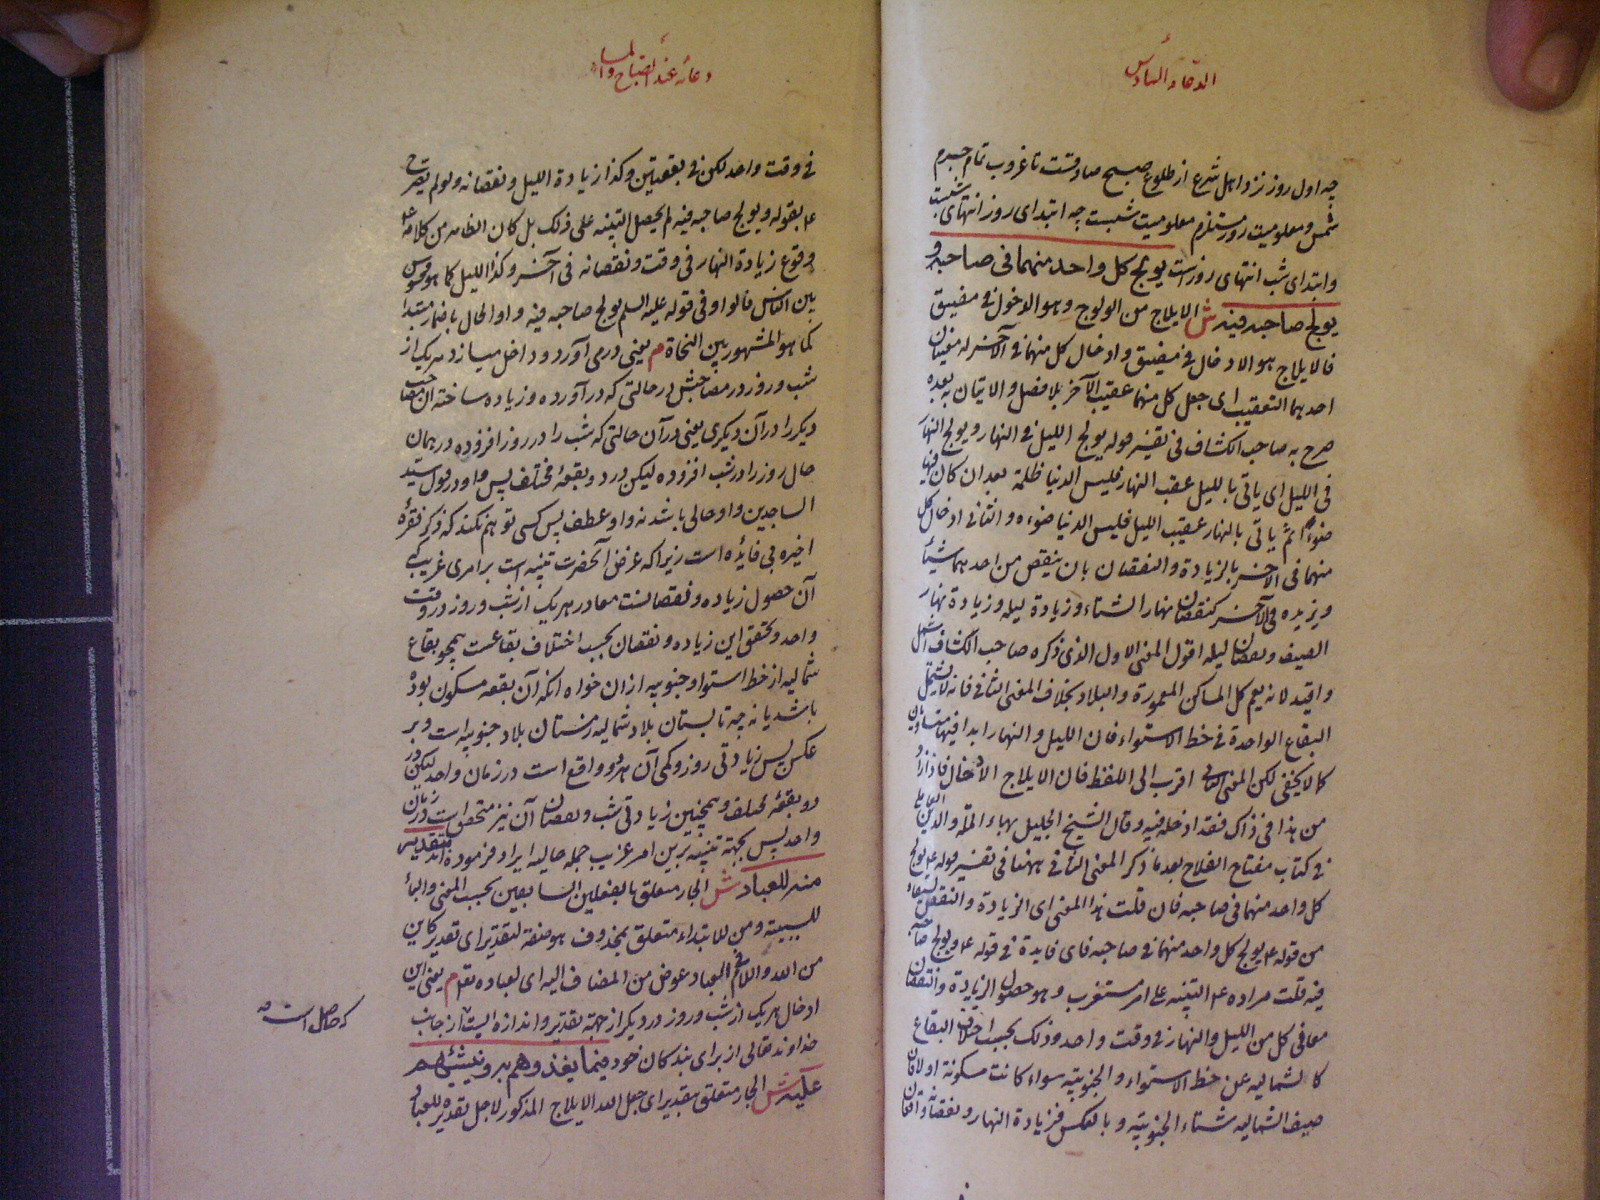 الدعاء السادس
چه اول روز نزد اهل شرع از طلوع صبح صادقست تا غروب تمام جرم
شمس و معلومیت روز مستلزم معلومیت شبست چه ابتدای روز انتهای شبست
و ابتدای شب انتهای روز است یولج کل واحد منهما فی صاحبه و
یولج صاحبه فیه ش الایلاج من الولوج و هو الدخول فی مضیق
فالایلاج هو الادخال فی مضیق و ادخال کل منهما فی الآخر له معنیان
احدهما التعقیب ای جعل کل منهما عقیب الآخر بلا فصل و الاتیان به بعده
صرح به صاحب الکشاف فی تفسیر قوله یولج اللیل فی النهار و یولج النهار
فی اللیل ای یاتی باللیل عقب النهار فلیبس الدنیا ظلمة بعد ان کان فیها
ضوء ثم یاتی بالنهار عقیب اللیل فلیبس الدنیا ضوءه و الثانی ادخال کل
منهما فی الآخر بالزیادة و النقصان بان ینقص من احدهما شیئا
و یزیده فی الآخر کنقصان نهار الشتاء و زیادة لیله و زیادة نهار
الصیف و نقصان لیله اقول المعنی الاول الذی ذکره صاحب الکشاف اشمل
و افید لانه یعم کل المساکن المعمورة و البلاد بخلاف المعنی الثانی فانه لا یشتمل
البقاع الواحدة فی خط الاستواء فان اللیل و النهار ابدا فیها متساویان
کما لا یخفی لکن المعنی الثانی اقرب الی اللفظ فان الایلاج الادخال فاذا زاد
من هذا فی ذاک فقد ادخله فیه و قال الشیخ الجلیل بهاء الملة و الدین العاملی
فی کتاب مفتاح الفلاح بعد ما ذکر المعنی الثانی ههنا فی تفسیر قوله ع یولج
کل واحد منهما فی صاحبه فان قلت هذا المعنی ای الزیادة و النقصان یستفاد
من قوله ع یولج کل واحد منهما فی صاحبه فای فایدة فی قوله ع و یولج صاحبه
فیه قلت مراده ع التنبیه علی امر مستغرب و هو حصول الزیادة و النقصان
معا فی کل من اللیل و النهار فی وقت واحد و ذلک بحسب اختلاف البقاع
کالشمالیه عن خط الاستواء و الجنوبیه سواء کانت مسکونة او لا فان
صیف الشمالیه شتاء الجنوبیة و بالعکس فزیادة النهار و نقصانه واقعان
دعائه عند الصباح والمساء
فی وقت واحد لکن فی بقعتین و کذا زیادة اللیل و نقصانه و لو لم یصرح
ع بقوله و یولج صاحبه فیه لم یحصل التنبیه علی ذلک بل کان الظاهر من کلامه ع
وقوع زیادة النهار فی وقت و نقصانه فی آخر و کذا اللیل کما هو محسوس
بین الناس قالوا و فی قوله علیه السلم یولج صاحبه فیه واو الحال باضمار مبتدا
کما هو المشهور بین النحاة م یعنی درمی آورد و داخل میسازد هر یک از
شب و روز در مصاحبش در حالتی که در آورده و زیاده ساخته ان صاحب
دیکر را در آن دیکری یعنی در آن حالتی که شب را در روز افزوده در همان
حال روز را در شب افزوده لیکن در دو بقعهٔ مختلف پس واو در قول سید
الساجدین واو حالی باشد نه واو عطف پس کسی توهم نکند که ذکر فقرهٔ
اخیره بی فایده است زیرا که غرض آنحضرت تنبیه است بر امری غریب که
آن حصول زیاده و نقصانست معا در هر یک از شب و روز در وقت
واحد و تحقق این زیاده و نقصان بحسب اختلاف بقاعست همچو بقاع
شمالیه از خط استوا و جنوبیه از ان خواه انکه آن بقعه مسکون بوده
باشد یا نه چه تابستان بلاد شمالیه زمستان بلاد جنوبیه است و بر
عکس پس زیادتی روز و کمی آن هر دو واقع است در زمان واحد لیکن در
دو بقعهٔ مختلف و همچنین زیادتی شب و نقصان آن نیز متحقق است در زمان
واحد پس بجهة تنبیه برین امر غریب جمله حالیه ایراد فرموده اند بتقدیر
منه للعباد ش الجار متعلق بالفعلین السابقین بحسب المعنی و الباء
للسببیة و من للابتداء متعلق بمحذوف هو صفة لتقدیر ای تقدیر کاین
من الله و اللام فی العباد عوض من المضاف الیه ای لعباده م یعنی این
ادخال هر یک از شب و روز در دیکر از جهة تقدیر و اندازه ایست از جانب
که حاصل است
خداوند تعالی از برای بندکان خود فیما یغذوهم به و ینشئهم
علیه ش الجار متعلق بتقدیر ای جعل الله الایلاج المذکور لاجل تقدیره للعباد